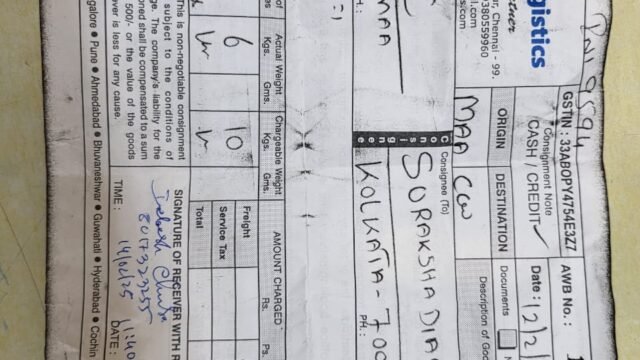 gistics
ar, Chennai - 99.
9380559960
s.com
artner
GSTIN : 33ABOPY4754E3Z7
Consignment Note
CASH / CREDIT ✓
AWB No. :
Date : 12/2
ORIGIN
DESTINATION
MAA
CCU
Documents
Description of Goo
MAA
PH. :
Consignee
Consignee (To)
SURAKSHA DIA
KOLKATA - 700
PH. :
of
Actual Weight
Kgs. Gms.
Chargeable Weight
Kgs. Gms.
AMOUNT CHARGED
Rs. Ps.
6
10
Freight
Service Tax
Total
This is non-negotiable consignment
subject to the conditions of
ge. The company's liability for the
oned shall be compensated to a sum
500/- or the value of the goods
ever is less for any cause.
SIGNATURE OF RECEIVER WITH R
8017323255
14/02/25
11:40
TIME :
DATE :
angalore ● Pune ● Ahmedabad ● Bhuvaneshwar ● Guwahati ● Hyderabad ● Cochin